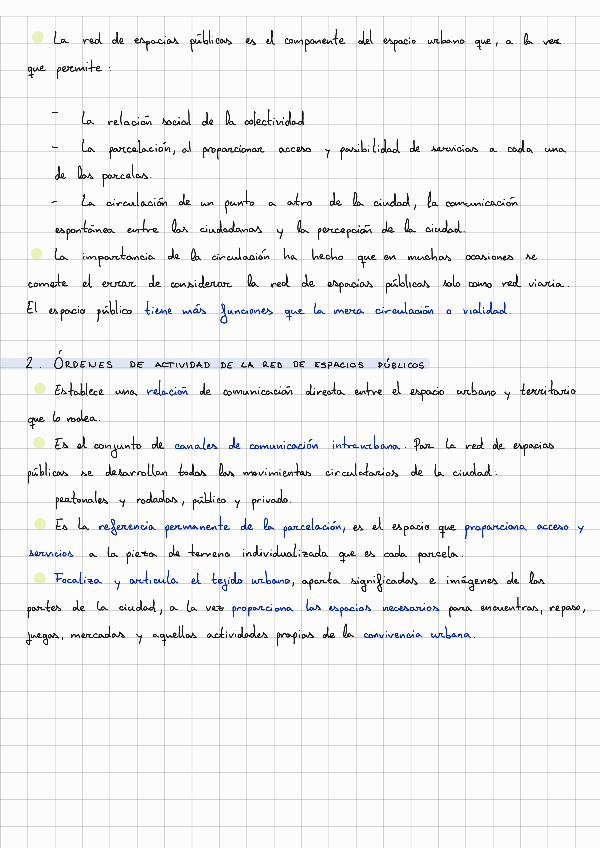 La red de espacios públicos es el componente del espacio urbano que, a la vez
que permite:
- La relación social de la colectividad
- La parcelación, al proporcionar acceso y posibilidad de servicios a cada una
de las parcelas.
- La circulación de un punto a otro de la ciudad, la comunicación
espontánea entre los ciudadanos y la percepción de la ciudad.
La importancia de la circulación ha hecho que en muchas ocasiones se
comete el error de considerar la red de espacios públicos solo como red viaria.
El espacio público tiene más funciones que la mera circulación o vialidad.
2. ÓRDENES DE ACTIVIDAD DE LA RED DE ESPACIOS PÚBLICOS
Establece una relación de comunicación directa entre el espacio urbano y territorio
que lo rodea.
Es el conjunto de canales de comunicación intraurbana. Por la red de espacios
públicos se desarrollan todos los movimientos circulatorios de la ciudad:
peatonales y rodados, público y privado.
Es la referencia permanente de la parcelación, es el espacio que proporciona acceso y
servicios a la pieza de terreno individualizada que es cada parcela.
Focaliza y articula el tejido urbano, aporta significados e imágenes de las
partes de la ciudad, a la vez proporciona los espacios necesarios para encuentros, reposo,
juegos, mercados y aquellas actividades propias de la convivencia urbana.